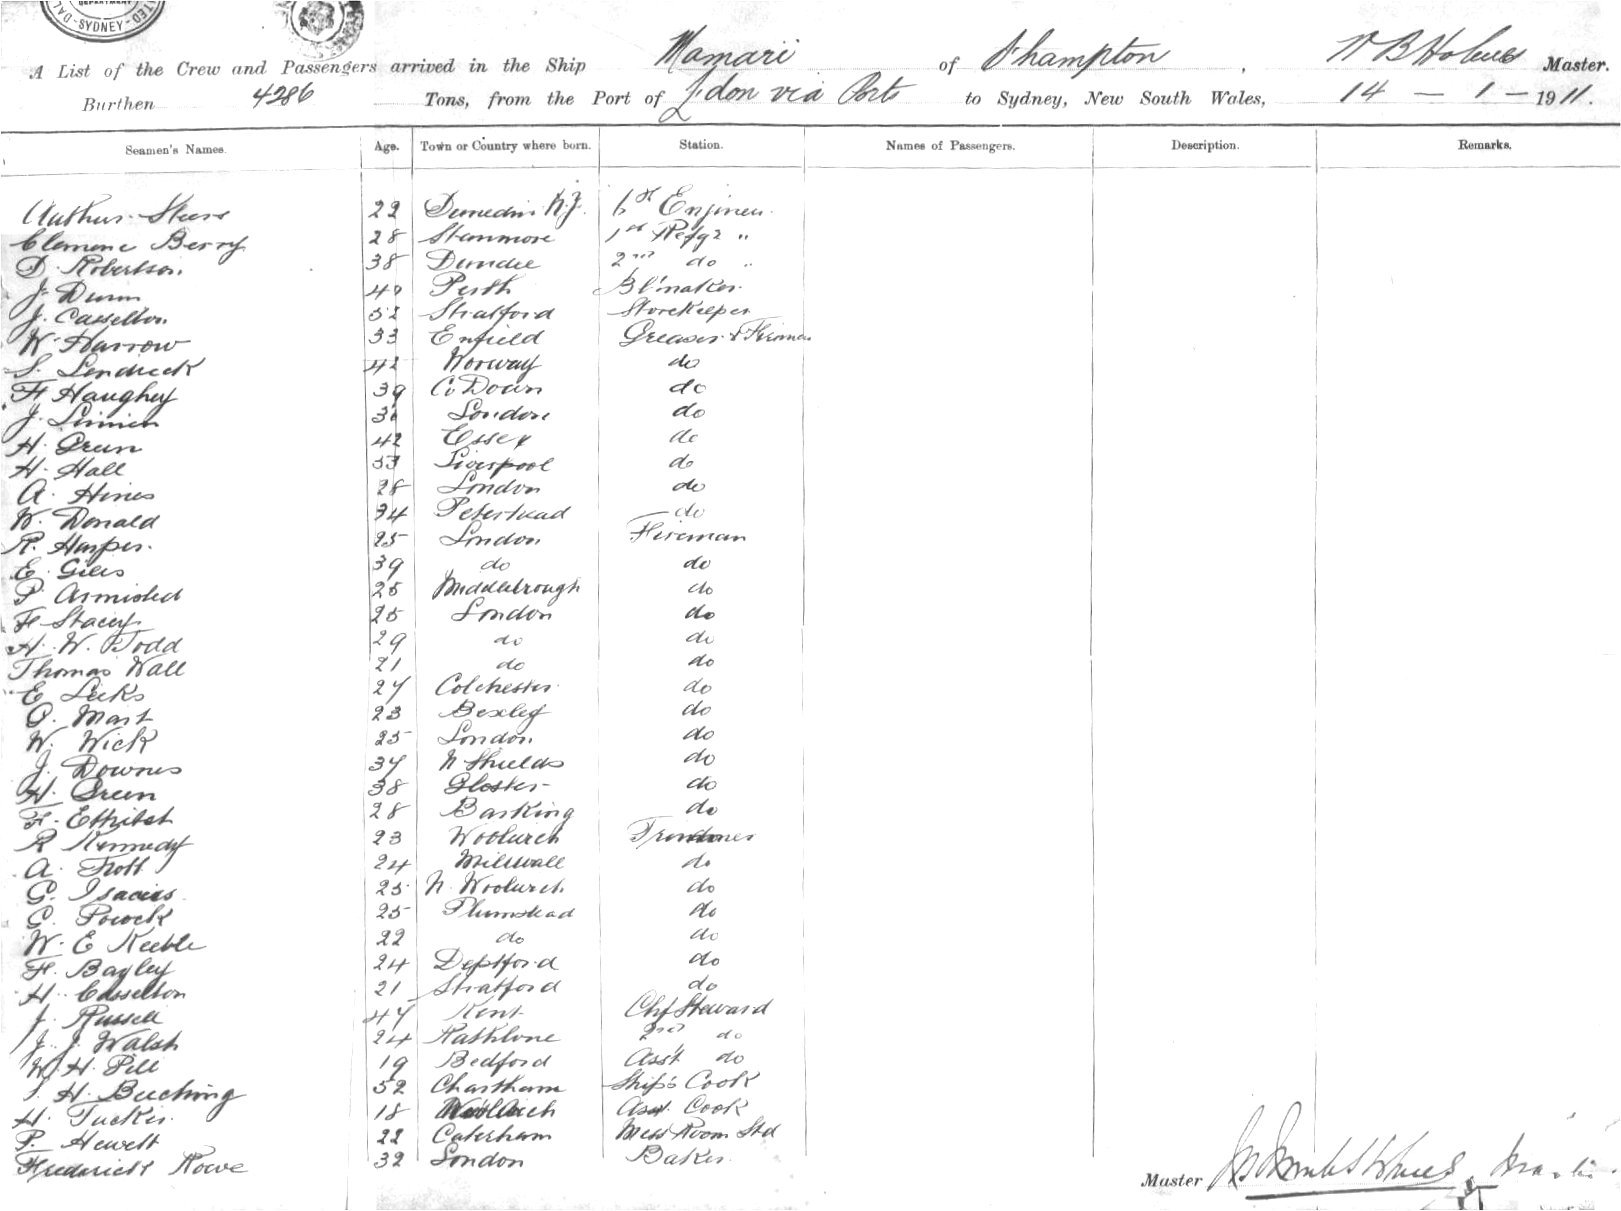 DEPARTMENT
SYDNEY
A List of the Crew and Passengers arrived in the Ship Mamari of S'hampton, W B Holmes Master.
Burthen 4286 Tons, from the Port of L'don via Ports to Sydney, New South Wales, 14 - 1 - 1911.
Seamen's Names. Age. Town or Country where born. Station. Names of Passengers. Description. Remarks.
22 Dunedin N.Z. 6th Engineer.
Berry 28 Stanmore 1st Refgr "
D. Robertson. 38 Dundee 2nd do "
J. Dunn Perth B'l'maker.
J. Casselton. 52 Stratford Storekeeper
W. Harrow 33 Enfield Greaser & Fireman
42 Norway do
F Haughey 39 Co Down do
J. London do
H. Green 42 Essex do
H. Hall 53 Liverpool do
A. Hines 28 London do
W. Donald 34 Peterhead do
R. Harper. 25 London Fireman
E. Giles 39 do do
P. 25 Middlebrough do
F Stacey 25 London do
H. W. Todd 29 do do
Thomas Wall 21 do do
E Leeks 27 Colchester do
Mast 23 Bexley do
W. Wick 25 London do
J. Downes 37 N Shields do
H. Green 38 Gloster do
F. 28 Barking do
R Kennedy 23 Woolwich Trimmer
A. Trott 24 Millwall do
G. Isaacs 25 N. Woolwich do
Pocock 25 Plumstead do
W. E Keeble 22 do do
F. Bagley 24 Deptford do
H. Casselton 21 Stratford do
J. Russell 47 Kent Chf Steward
J. J. Walsh 24 Rathlone 2nd do
W. H. Pill 19 Bedford Ass't do
H. Beeching 52 Chartham Ship's Cook
H. Tucker. 18 Woolwich Asst. Cook
P. Hewett 22 Caterham Mess Room Std
Frederick Rowe 32 London Baker
Master